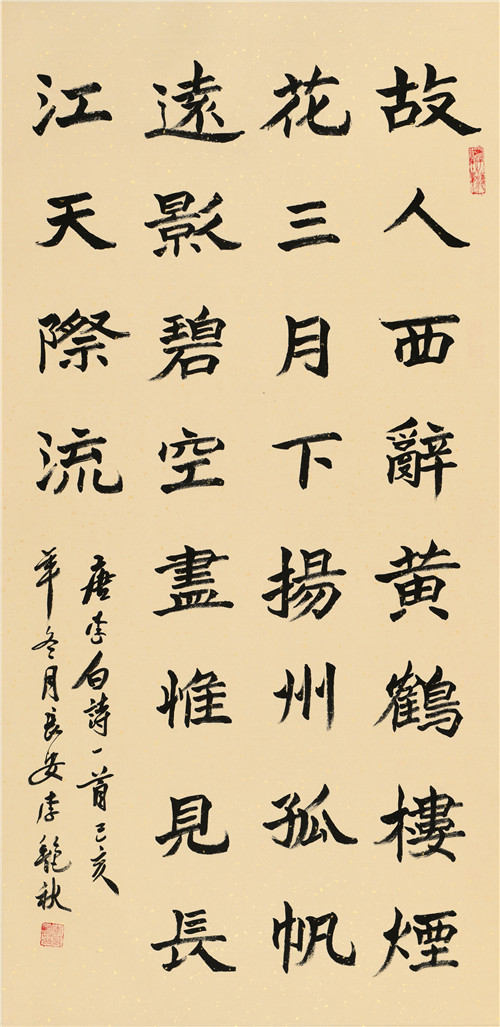 故人西辭黄鶴樓煙
花三月下揚州孤帆
遠影碧空盡惟見長
江天際流
唐李白詩一首己亥
年冬月長安李龍秋